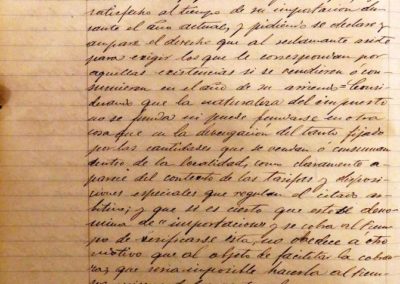 satisfecho al tiempo de su importacion du-
rante el año actual; y pidiendo se declare y
ampare el derecho que al reclamante asiste
para exigir los que le correspondan por
aquellas existencias si se vendieren ó con-
sumieran en el año de su arriendo = Consi-
derando que la naturaleza del impuesto
no se funda ni puede fundarse en otra
cosa que en la devengacion del tanto fijado
por las cantidades que se vendan ó consuman
dentro de la localidad, como claramente a-
parece del contexto de las tarifas y disposi-
ciones especiales que regulan el citado ar-
bitrio; y que si es cierto que este se deno-
mina de "importacion" y se cobra al tiem-
po de verificarse esta, no obedece á otro
motivo que al objeto de facilitar la cobran-
za, que seria imposible hacerla al tiem-